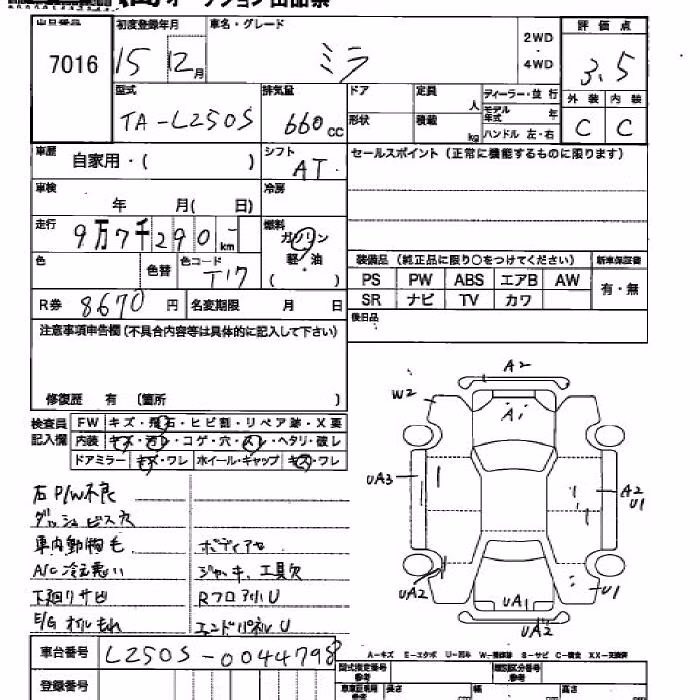 オークション出品票
出品番号
7016
初度登録年月
15 12月
車名・グレード
ミラ
2WD
・
4WD
評価点
3.5
外装 内装
C C
型式
TA-L250S
排気量
660cc
ドア
定員
人
形状
積載
kg
ディーラー・並行
モデル年式
年
ハンドル 左・右
車歴
自家用・( )
シフト
AT
セールスポイント(正常に機能するものに限ります)
車検
年 月( 日)
冷房
走行
9万7千290km
燃料
ガソリン
軽・油
( )
色
色替
色コード
T17
装備品 (純正品に限り○をつけてください)
PS PW ABS エアB AW
SR ナビ TV カワ
新車保証書
有・無
R券 8670円
名変期限 月 日
後日品
注意事項申告欄(不具合内容等は具体的に記入して下さい)
修復歴 有 〔箇所 〕
検査員
記入欄
FW キズ・飛石・ヒビ割・リペア跡・X要
内装 キズ・汚レ・コゲ・穴・スレ・ヘタリ・破レ
ドアミラー キズ・ワレ ホイール・キャップ キズ・ワレ
右P/W不良
ダッシュビス穴
車内動物毛
ボディアセ
A/C冷え悪い
ジャッキ、工具欠
下廻りサビ
RフロアU
E/Gオイルもれ
エンドパネルU
A2
W2
A1
UA3
A2
U1
UA2
UA1
U1
UA2
車台番号
L250S-0044798
登録番号
A-キズ E-エクボ U-凹み W-補修跡 S-サビ C-腐食 XX-交換済
型式指定番号
参考
類別区分番号
参考
車庫証明用
参考
長さ
幅
高さ